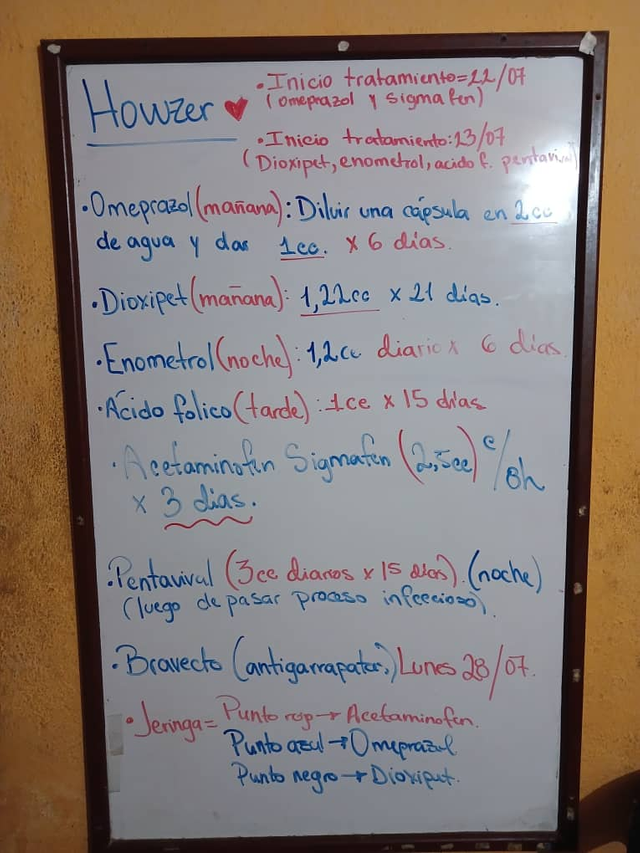 Howzer
• Inicio tratamiento=22/07
(omeprazol y sigmafen)
• Inicio tratamiento:23/07
(Dioxipet, enometrol, acido f. pentavival)
• Omeprazol (mañana): Diluir una cápsula en 2cc
de agua y dar 1cc. x 6 días.
• Dioxipet (mañana): 1,22cc x 21 días.
• Enometrol (noche): 1,2cc diario x 6 días.
• Ácido folico (tarde): 1cc x 15 días
• Acetaminofen Sigmafen (2,5cc) c/8h
x 3 días.
• Pentavival (3cc diarios x 15 días). (noche)
(luego de pasar proceso infeccioso).
• Bravecto (antigarrapatas) Lunes 28/07.
• Jeringa = Punto rojo → Acetaminofen.
Punto azul → Omeprazol
Punto negro → Dioxipet.